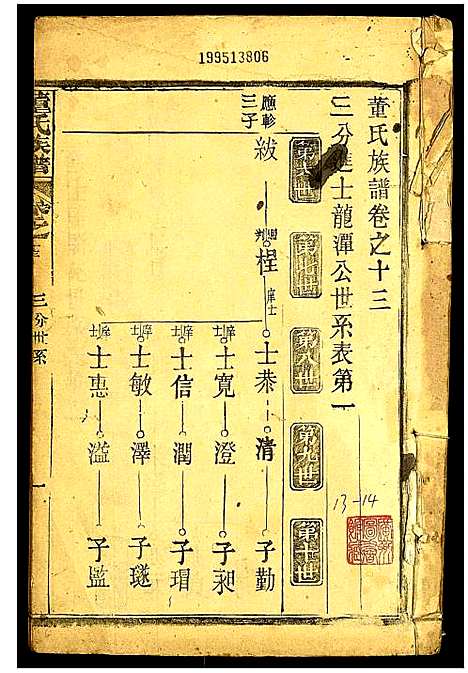 199513806
董氏族譜卷之十三
三分進士龍潭公世系表第一
第六世
第七世
第八世
第九世
第十世
應軫
三子
紱
桯 庠士
士恭
清
子勤
庠士
士寬
澄
子昶
庠士
士信
潤
子瑁
庠士
士敏
澤
子璲
庠士
士惠
溢
子監
董氏族譜
三分世系
一
13-14